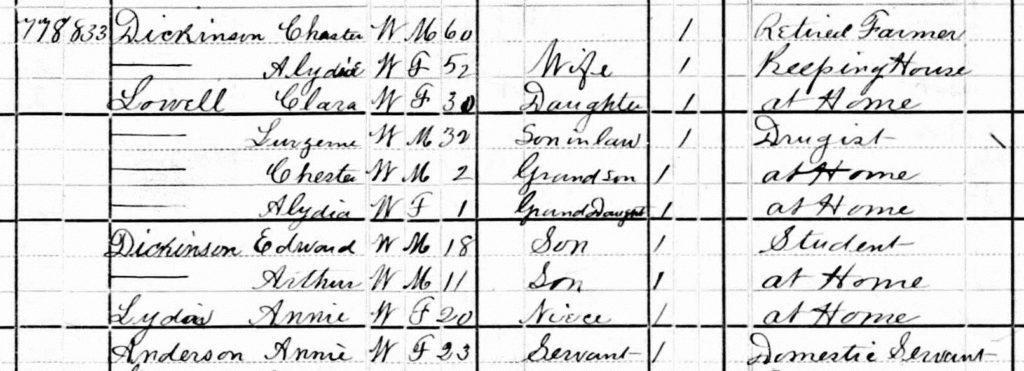 778 833 Dickinson Chester W M 60 1 Retired Farmer
— Alydia W F 52 Wife 1 Keeping House
Lowell Clara W F 30 Daughter 1 at Home
— Luzerne W M 32 Son in law 1 Drugist
— Chester W M 2 Grand son 1 at Home
— Alydia W F 1 Grand Daught 1 at Home
Dickinson Edward W M 18 Son 1 Student
— Arthur W M 11 Son 1 at Home
Annie W F 20 Niece 1 at Home
Anderson Annie W F 23 Servant 1 Domestic Servant